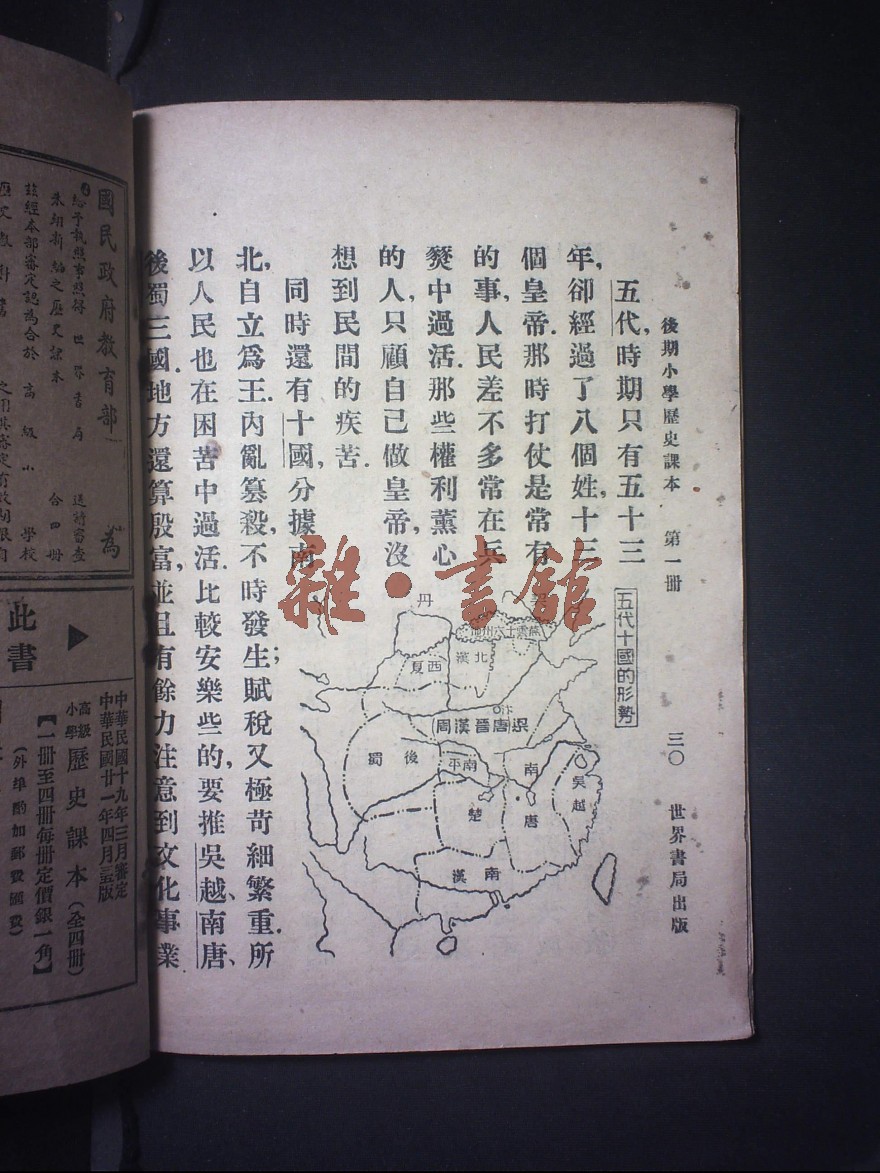 後期小學歷史課本　第一冊　三〇　世界書局出版
五代時期只有五十三
年,卻經過了八個姓,十三
個皇帝.那時打仗是常有
的事,人民差不多常在兵
燹中過活.那些權利薰心
的人,只顧自己做皇帝,沒
想到民間的疾苦.
同時還有十國,分據南
北,自立爲王.內亂篡殺,不時發生;賦稅又極苛細繁重.所
以人民也在困苦中過活.比較安樂些的,要推吳越、南唐、
後蜀三國.地方還算殷富,並且有餘力注意到文化事業
五代十國的形勢
丹
燕雲十六州地
北漢
西夏
汴
梁唐晉漢周
後蜀
南平
南唐
吳越
楚
南漢
雜·書館
國民政府教育部 爲
給予執照事照得 世界書局 送請審查
朱翊新編之歷史課本 合四冊
茲經本部審定認為合於 高級小學校
此書
中華民國十九年三月審定
中華民國廿一年四月三版
高級小學 歷史課本 (全四冊)
【一冊至四冊每冊定價銀一角】
(外埠酌加郵費匯費)